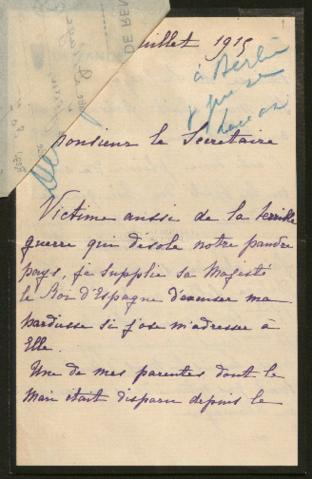 DE REN
uillet 1915
à Berlin
Monsieur le Secrétaire
Victime aussi de la terrible
guerre qui désole notre pauvre
pays, je supplie sa Majesté
le Roi d'Espagne d'excuser ma
hardiesse si j'ose m'adresser à
Elle.
Une de mes parentes dont le
Mari était disparu depuis le